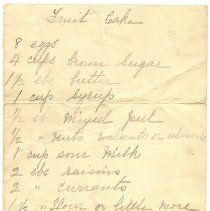 Fruit Cake
8 eggs
4 cups brown Sugar
1½ lbs butter
1 cup Syrup
½ lb Mixed Peel
½ " nuts walnuts or almonds
1 cup sour Milk
2 lbs raisins
2 " currants
1½ " flour or little more